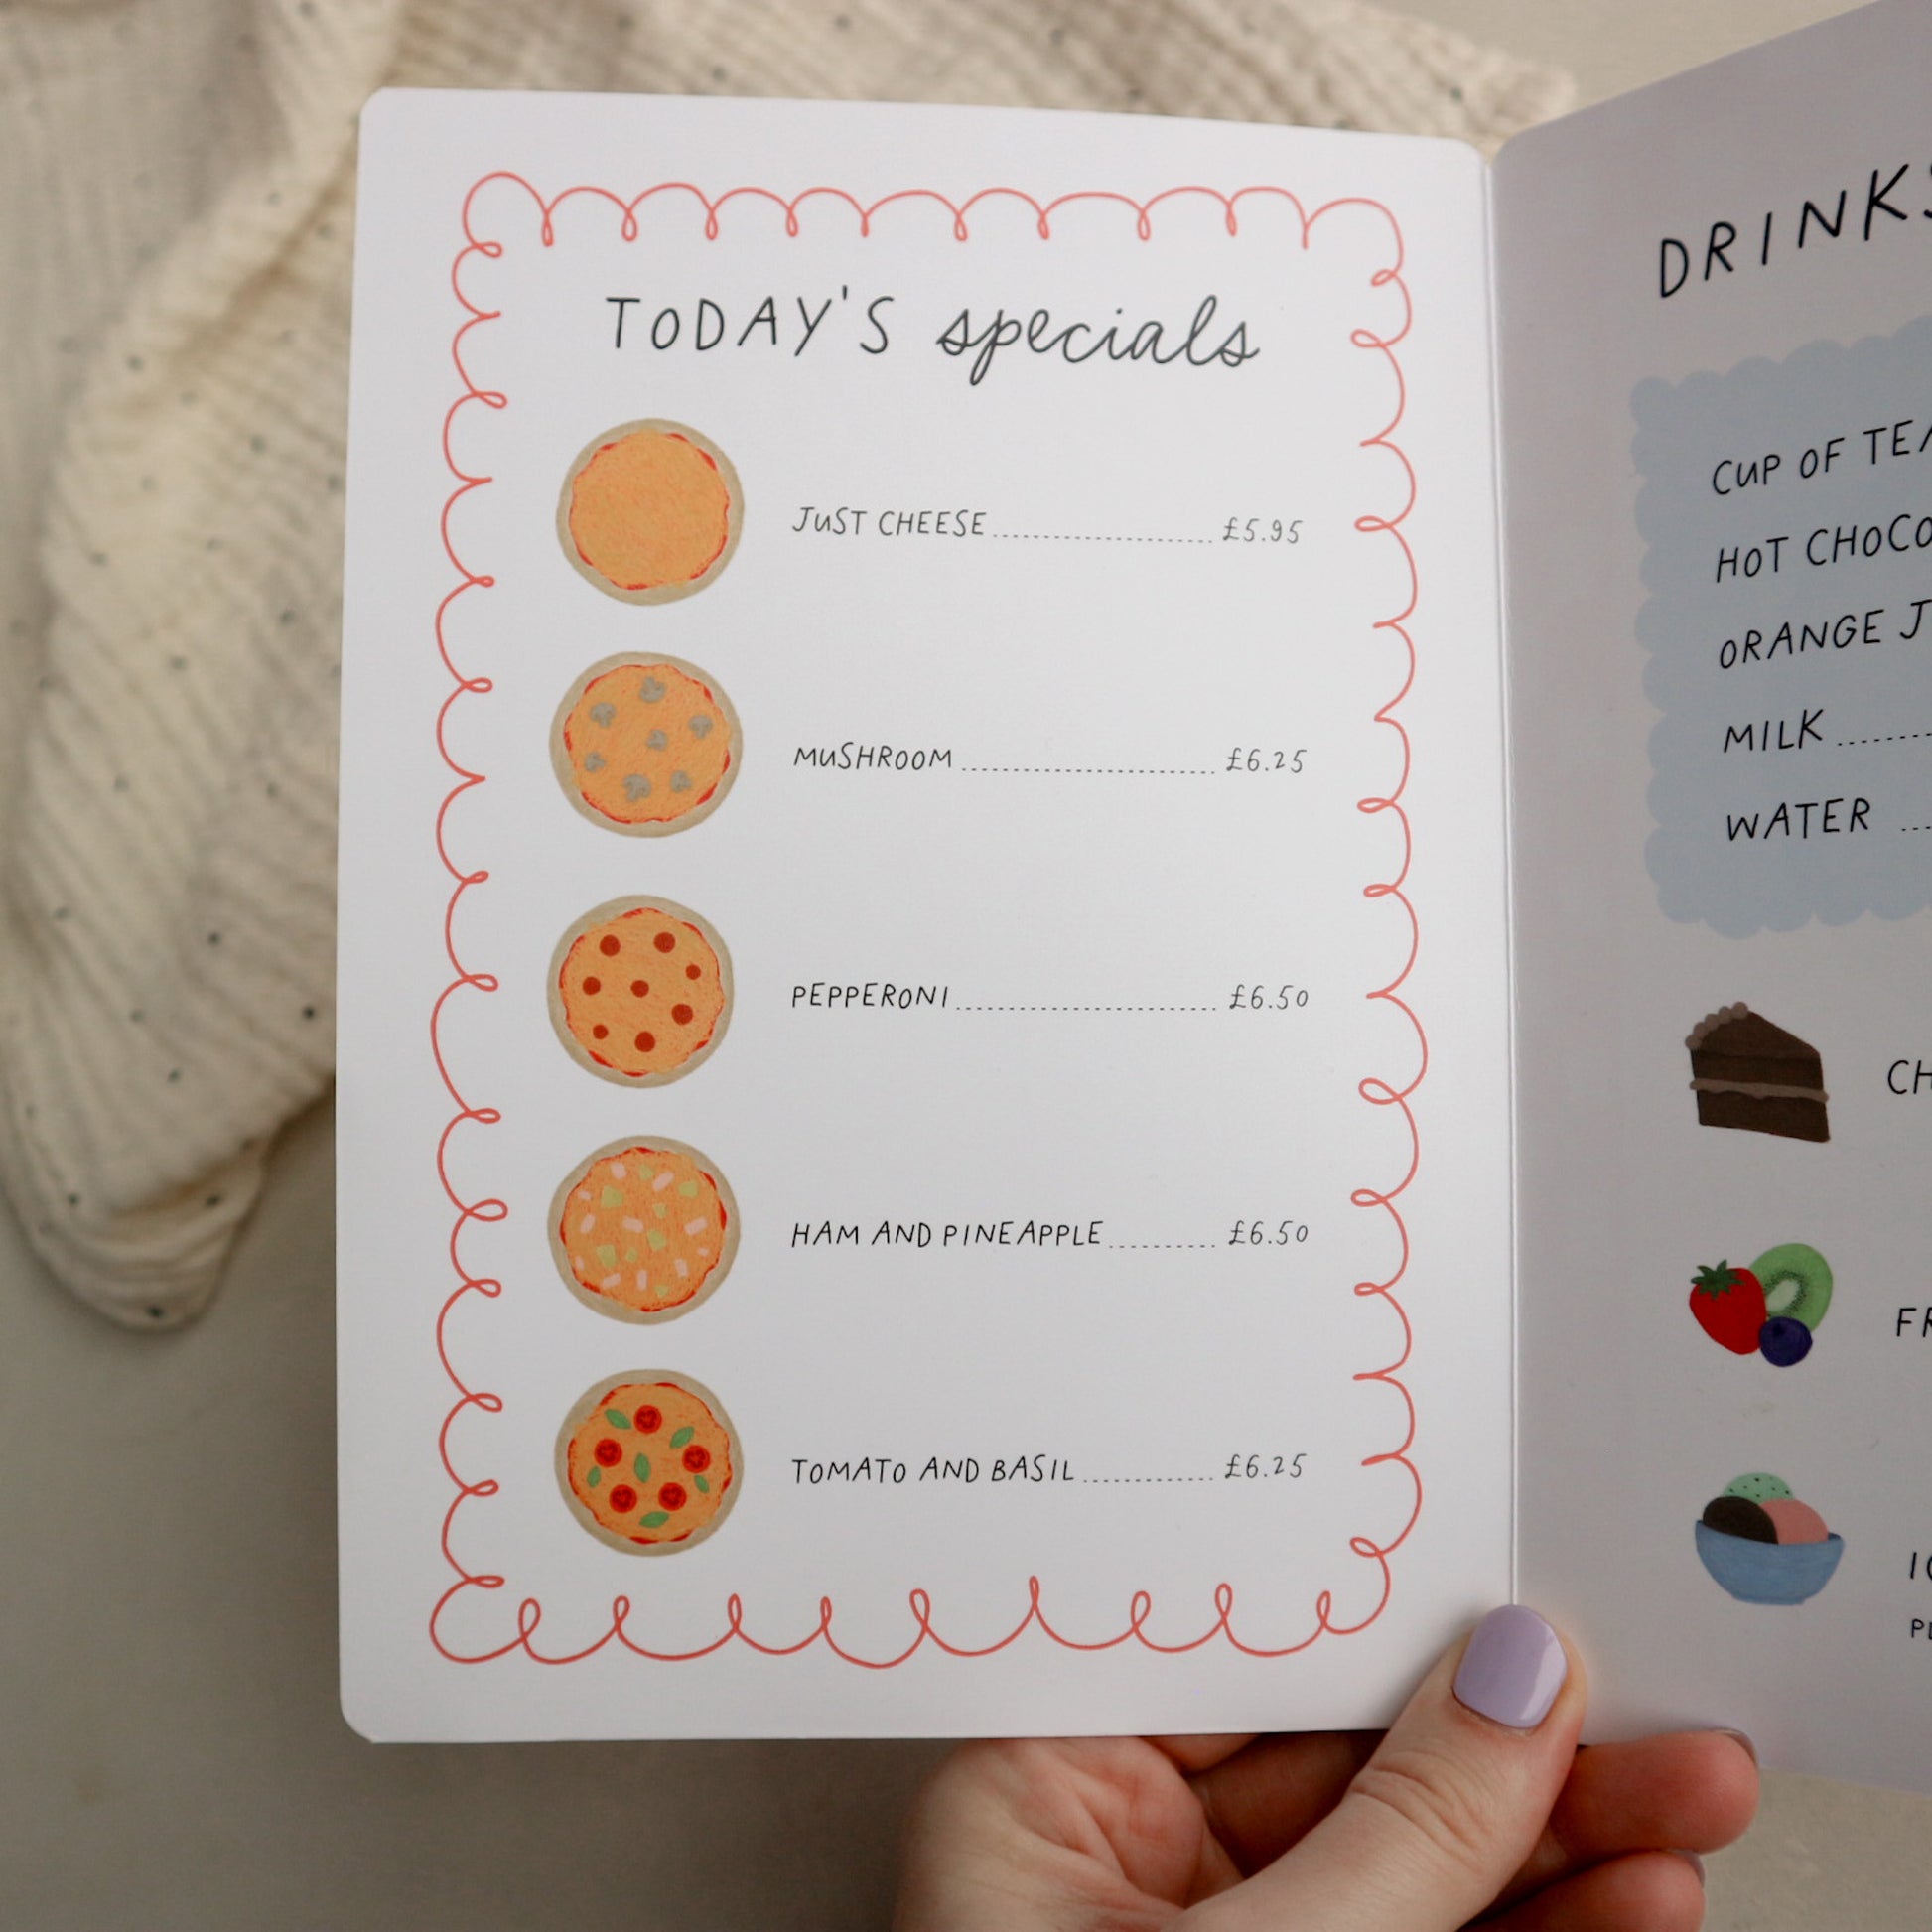 TODAY'S specials
JUST CHEESE £5.95
MUSHROOM £6.25
PEPPERONI £6.50
HAM AND PINEAPPLE £6.50
TOMATO AND BASIL £6.25
DRINKS
CUP OF TEA
HOT
ORANGE
MILK
WATER